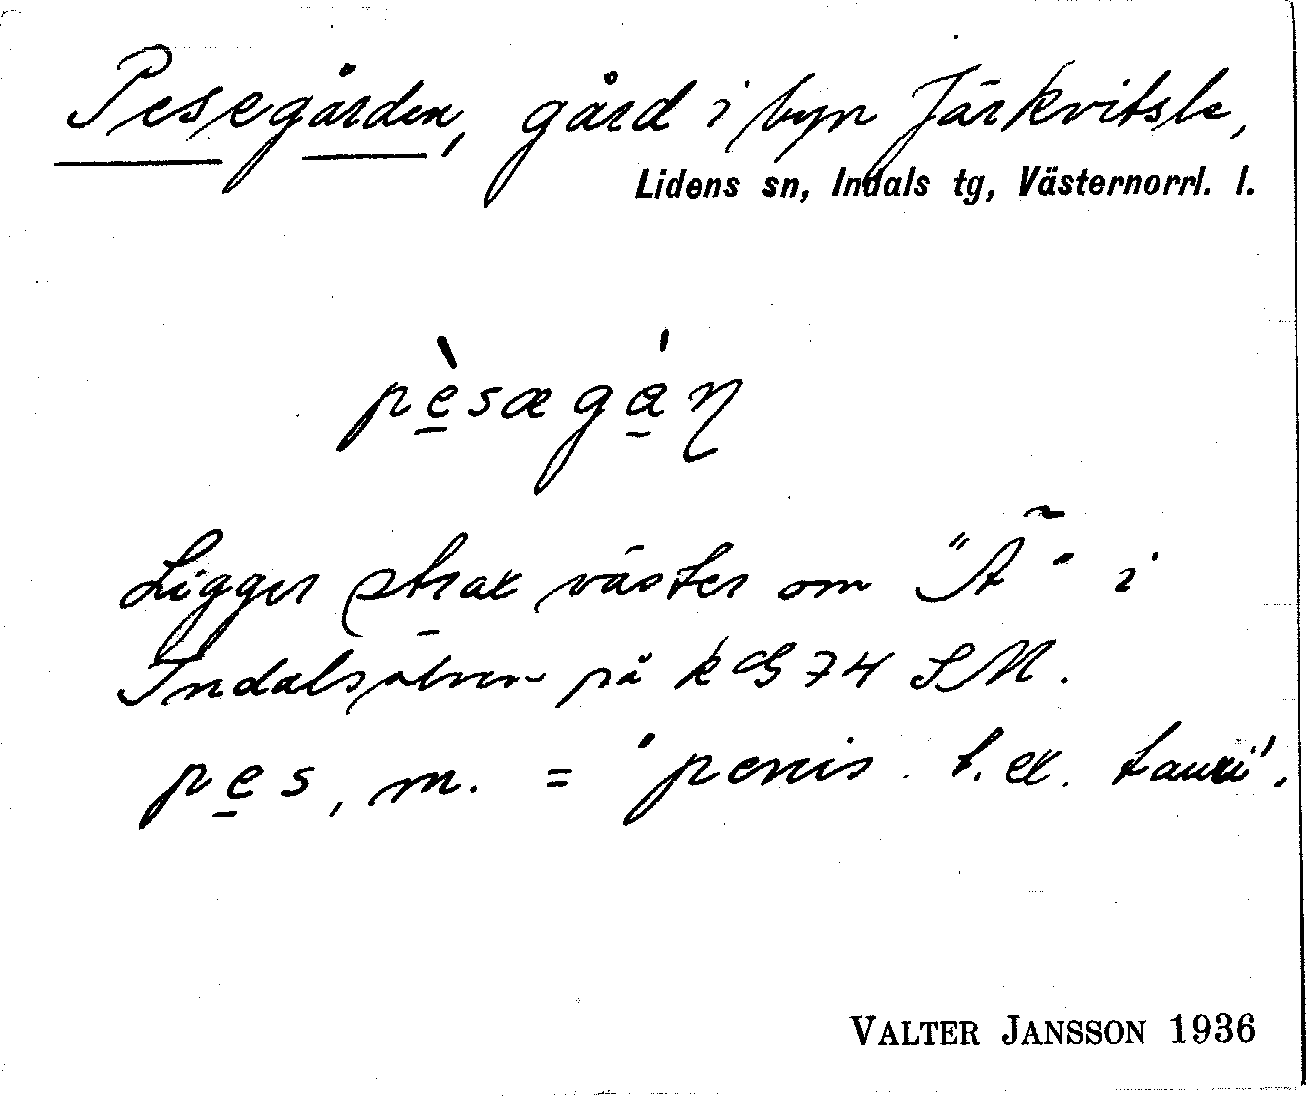 Pesegården, gård i byn Järkvitsle,
Lidens sn, Indals tg, Västernorrl. l.
pèsægán
Ligger strax väster om "Ä" i
Indalsälven på kbl 74 SM.
pes, m. = 'penis t. ex. tauri'.
VALTER JANSSON 1936